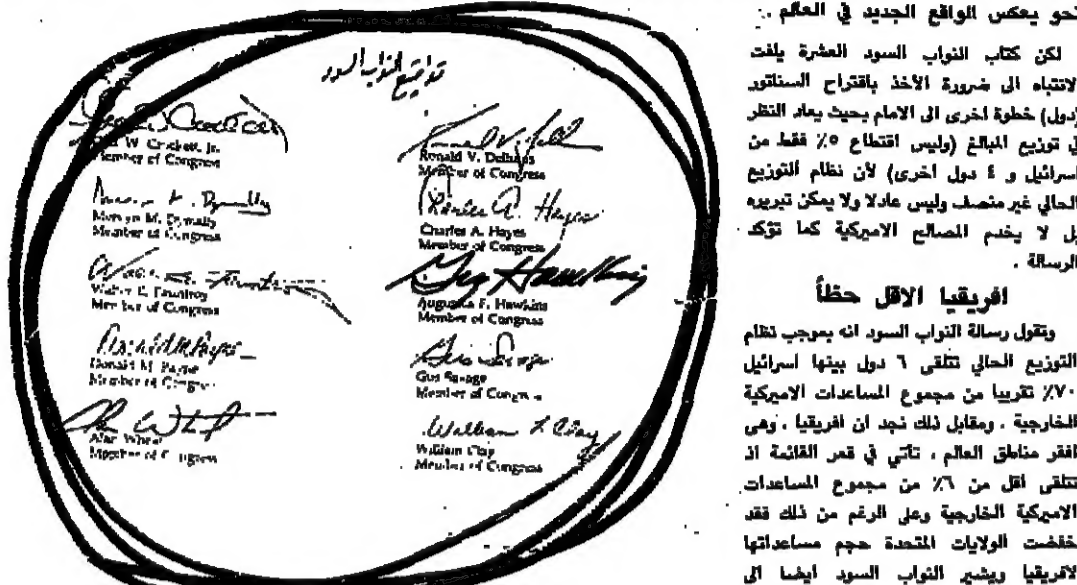 نحو يعكس الواقع الجديد في العالم .
لكن كتاب النواب السود العشرة يلفت
الانتباه الى ضرورة الأخذ باقتراح السناتور
(دول) خطوة اخرى الى الامام بحيث يعاد النظر
في توزيع المبالغ (وليس اقتطاع ٥٪ فقط من
اسرائيل و ٤ دول اخرى) لأن نظام التوزيع
الحالي غير منصف وليس عادلا ولا يمكن تبريره
بل لا يخدم المصالح الاميركية كما تؤكد
الرسالة .
افريقيا الاقل حظاً
وتقول رسالة النواب السود انه بموجب نظام
التوزيع الحالي تتلقى ٦ دول بينها اسرائيل
٧٠٪ تقريبا من مجموع المساعدات الاميركية
الخارجية . ومقابل ذلك نجد ان افريقيا ، وهي
افقر مناطق العالم ، تأتي في قعر القائمة اذ
تتلقى اقل من ٦٪ من مجموع المساعدات
الاميركية الخارجية وعلى الرغم من ذلك فقد
خفضت الولايات المتحدة حجم مساعداتها
لافريقيا ويشير النواب السود ايضا الى
تواقيع النواب السود
W. Crockett, Jr.
Member of Congress
Mervyn M. Dymally
Member of Congress
Walter E. Fauntroy
Member of Congress
Donald M. Payne
Member of Congress
Alan Wheat
Member of Congress
Ronald V. Dellums
Member of Congress
Charles A. Hayes
Charles A. Hayes
Member of Congress
Gus Hawkins
Augustus F. Hawkins
Member of Congress
Gus Savage
Gus Savage
Member of Congress
William L. Clay
William Clay
Member of Congress